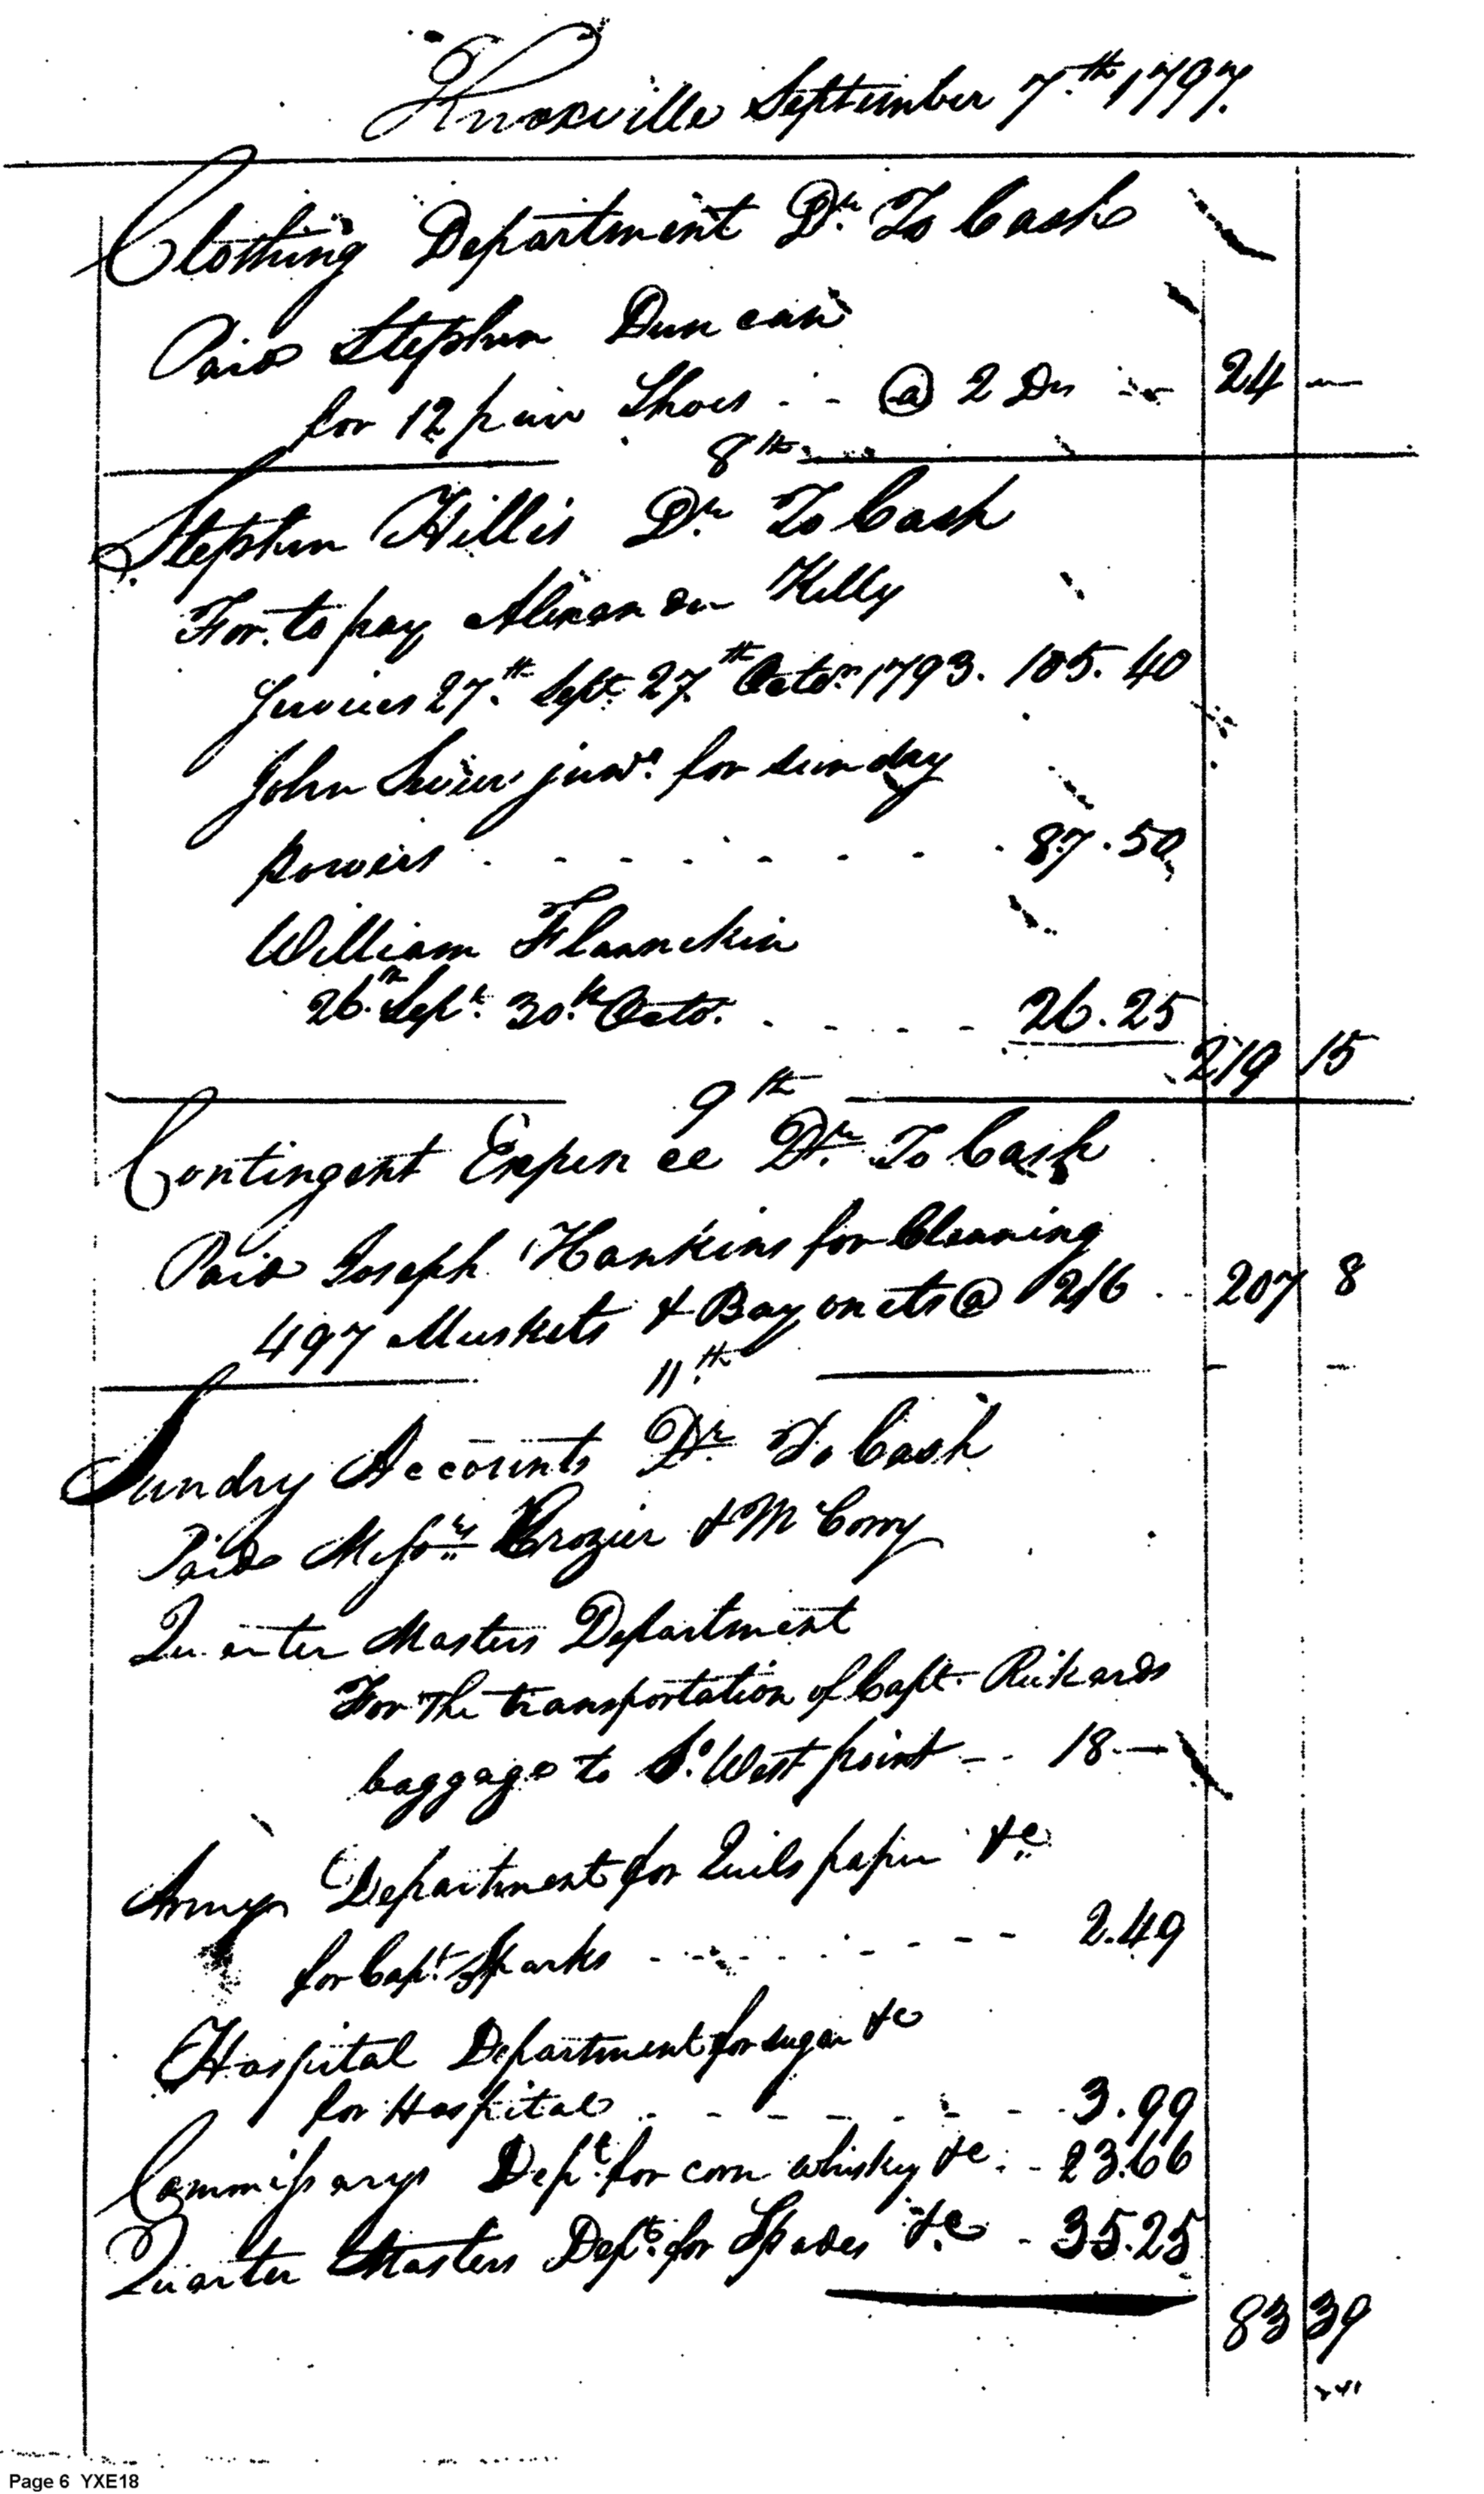 Knoxville September 7th 1797.
Clothing Department Dr. To Cash
Paid Stephen Duncan
for 12 pair Shoes - - @ 2 Drs 24 —
8th
Stephen Hillis Dr. To Cash
For. to pay Alexander Kelly
Services 27th Sept. 27th Octor. 1793. 105.40
John Sevier junr. for sunday
powers - - - - - - - 87.50
William
26th Sept. 30th Octo. - - - - 26.25
219 15
9th
Contingent Expence Dr. To Cash
Paid Joseph Hankins for Cleaning
497 Muskets & Bayonets @ 2/6 - - 207 8
11th
Sundry Accounts Dr. To Cash
Paid Messrs. Crozier & McCorry
Quarter Masters Department
For The transportation of Capt. Rickards
baggage to S. West point - - 18 —
Army Department for Quils paper &c.
for Capt. Sparks - - - - - - - - - 2.49
Hospital Department for sugar &c
for Hospital - - - - - - - - 3.99
Commissarys Dept. for corn whisky &c. - 23.66
Quarter Masters Dept. for Spades &c - 35.25
83 39
Page 6 YXE18